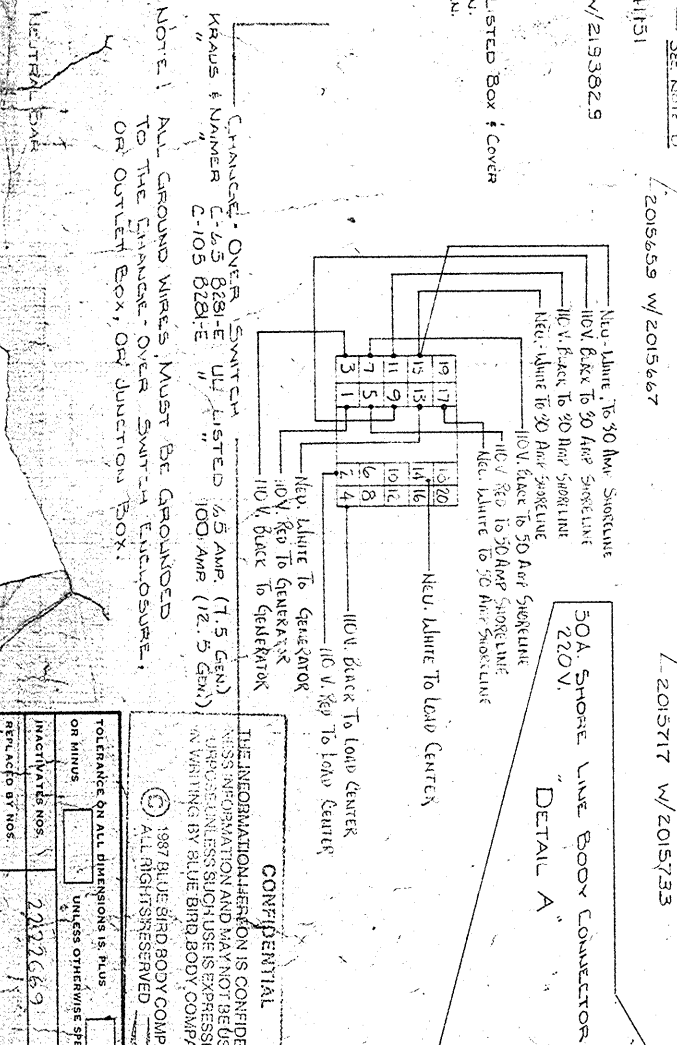 SEE NOTE
W/21938 29
LISTED BOX & COVER
2015659 W/2015667
2015717 W/2015733
NEU.- WHITE, TO 30 AMP SHORELINE
110V. BLACK TO 30 AMP SHORELINE
110V. BLACK TO 30 AMP SHORELINE
NEU.- WHITE TO 30 AMP SHORELINE
110V. BLACK TO 50 AMP SHORELINE
110V RED TO 50 AMP SHORELINE
NEU. WHITE TO 50 AMP SHORELINE
50 A. SHORE LINE BODY CONNECTOR
220V. "
DETAIL A "
19 17 18 20
15 13 14 16
11 9 10 12
7 5 6 8
3 1 2 4
NEU. WHITE TO LOAD CENTER
110V. BLACK TO LOAD CENTER
110 V. RED TO LOAD CENTER
NEU. WHITE TO GENERATOR
110V. RED TO GENERATOR
110 V. BLACK TO GENERATOR
CHANGE - OVER SWITCH
KRAUS & NAIMER C-65 B281-E UL LISTED 65 AMP. (7.5 GEN.)
" " C-105 B281-E " " 100 AMP. (12.5 GEN.)
NOTE! ALL GROUND WIRES MUST BE GROUNDED
TO THE CHANGE - OVER SWITCH ENCLOSURE,
OR OUTLET BOX, OR JUNCTION BOX.
NEUTRAL BAR
CONFIDENTIAL
THE INFORMATION HEREON IS CONFIDE
NESS INFORMATION AND MAY NOT BE US
PURPOSE UNLESS SUCH USE IS EXPRESS
IN WRITING BY BLUE BIRD BODY COMPA
© 1987 BLUE BIRD BODY COMP
ALL RIGHTS RESERVED
TOLERANCE ON ALL DIMENSIONS IS PLUS
OR MINUS UNLESS OTHERWISE SPE
INACTIVATES NOS. 2292669
REPLACED BY NOS.